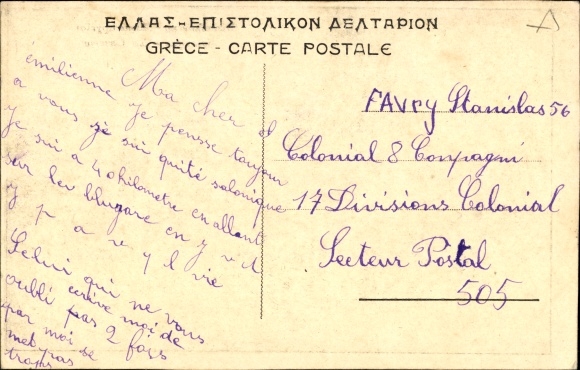 ΕΛΛΑΣ-ΕΠΙΣΤΟΛΙΚΟΝ ΔΕΛΤΑΡΙΟΝ
GRÈCE - CARTE POSTALE
Ma cher
émilienne je pensse toujour
a vous je sui quité salonique
je sui a 40 kilometre en allant
sur lev blugare en y vit
y p a v y l vie
Selui qui ne vous
oubli pas 2 fois
ecrive moi de
par moi se
met pas
trops
FAVRY Stanislas 56
Colonial 8 Conpagni
17 Divisions Colonial
Secteur Postal
505